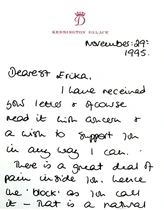 D
KENSINGTON PALACE
November. 29th
1995.
Dearest Erika,
I have received
your letter & of course
read it with concern &
a wish to support you
in any way I can.
There is a great deal of
pain inside you. hence
the 'block' as you call
it - that is a natural